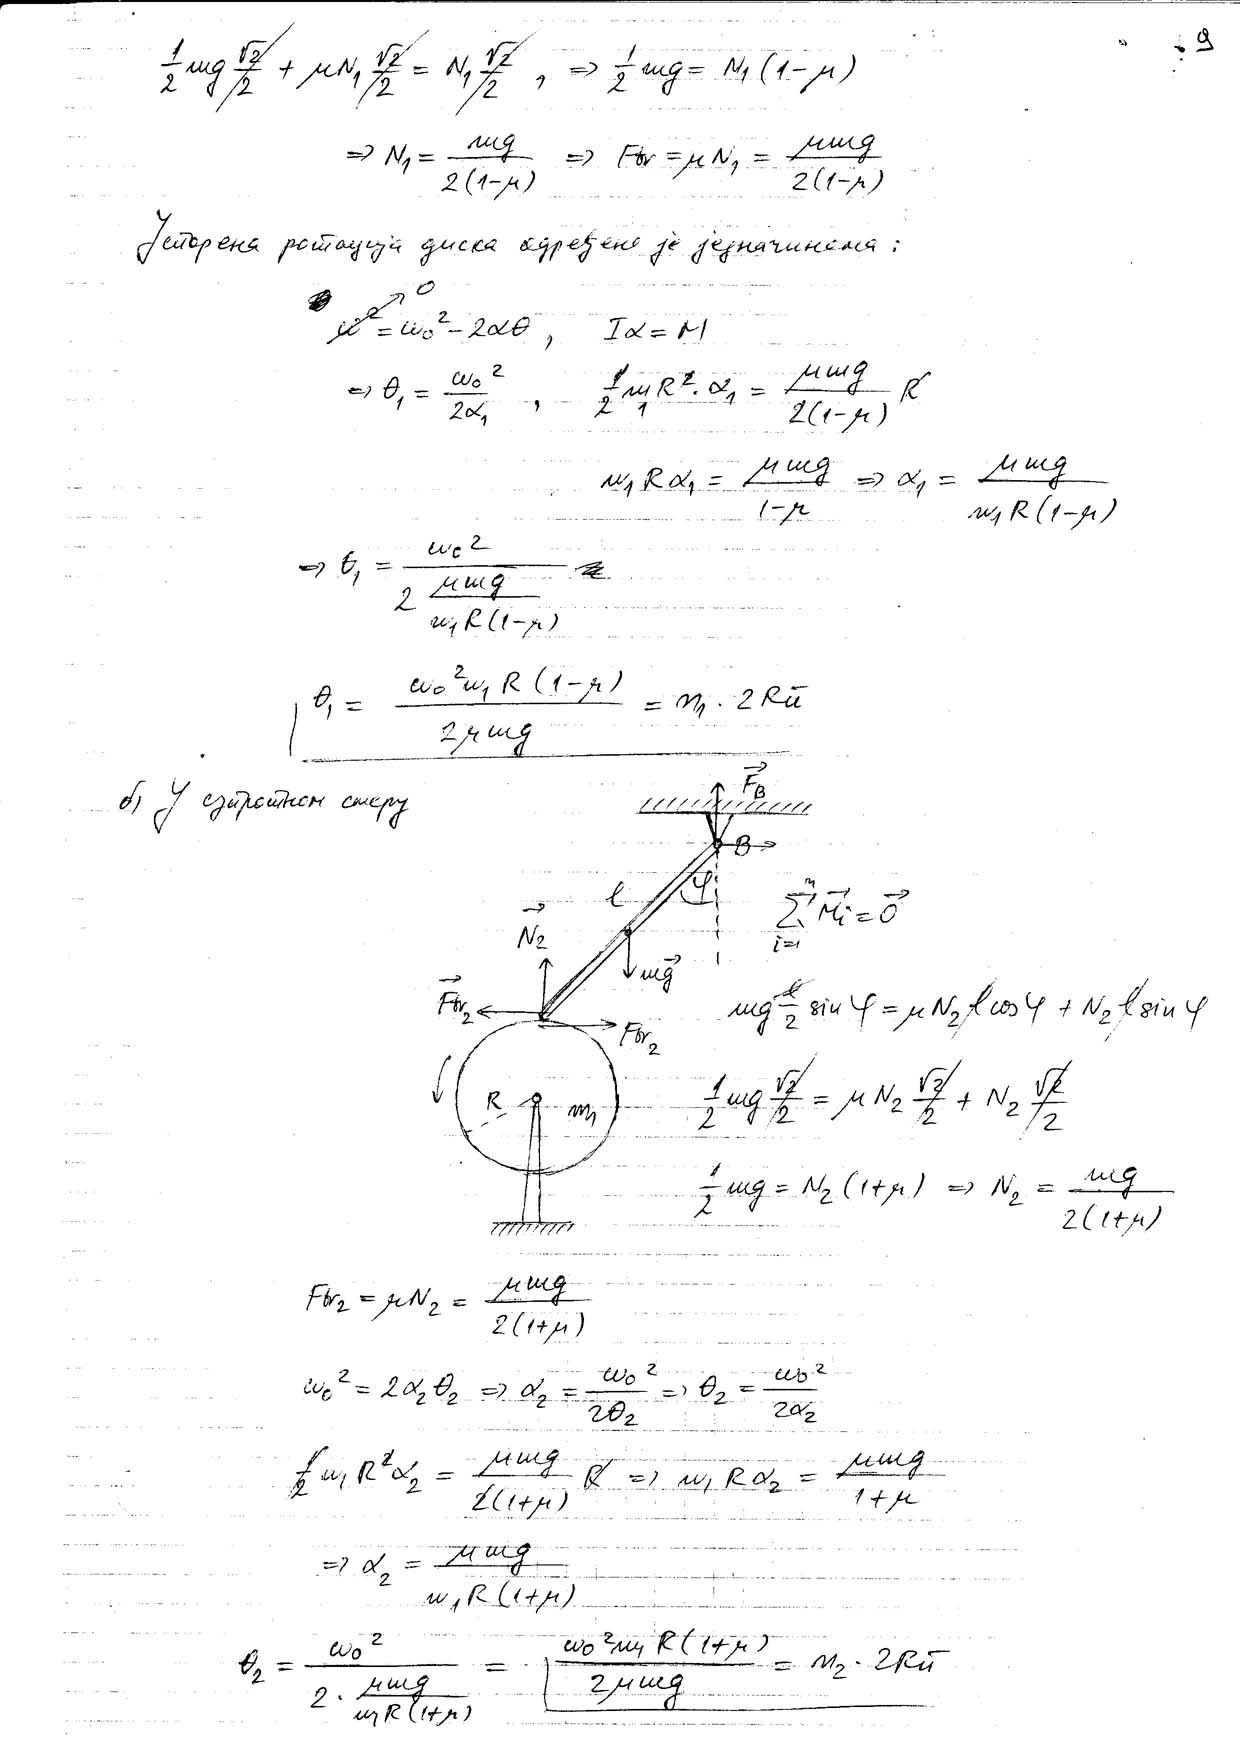 9
1/2 mg √2/2 + μN₁ √2/2 = N₁ √2/2 , ⇒ 1/2 mg = N₁ (1-μ)
⇒ N₁ = mg/2(1-μ) ⇒ Ftr = μN₁ = μmg/2(1-μ)
Успорена ротација диска одређена је једначинама :
ω² = ω₀² - 2αθ , Iα = M
0
⇒ θ₁ = ω₀²/2α₁ , 1/2 m₁R²·α₁ = μmg/2(1-μ) R
m₁Rα₁ = μmg/1-μ ⇒ α₁ = μmg/m₁R(1-μ)
⇒ θ₁ = ω₀²/2 μmg/m₁R(1-μ)
θ₁ = ω₀²m₁R(1-μ)/2μmg = n₁ · 2Rπ
б) У супротном смеру
F⃗B
B
l
φ
N⃗₂
mg⃗
F⃗tr₂
Ftr₂
R
m₁
∑ⁿᵢ₌₁ M⃗i = 0⃗
mg l/2 sin φ = μN₂ l cos φ + N₂ l sin φ
1/2 mg √2/2 = μN₂ √2/2 + N₂ √2/2
1/2 mg = N₂ (1+μ) ⇒ N₂ = mg/2(1+μ)
Ftr₂ = μN₂ = μmg/2(1+μ)
ω₀² = 2α₂θ₂ ⇒ α₂ = ω₀²/2θ₂ ⇒ θ₂ = ω₀²/2α₂
1/2 m₁R²α₂ = μmg/2(1+μ) R ⇒ m₁Rα₂ = μmg/1+μ
⇒ α₂ = μmg/m₁R(1+μ)
θ₂ = ω₀²/2 · μmg/m₁R(1+μ) = ω₀²m₁R(1+μ)/2μmg = n₂ · 2Rπ